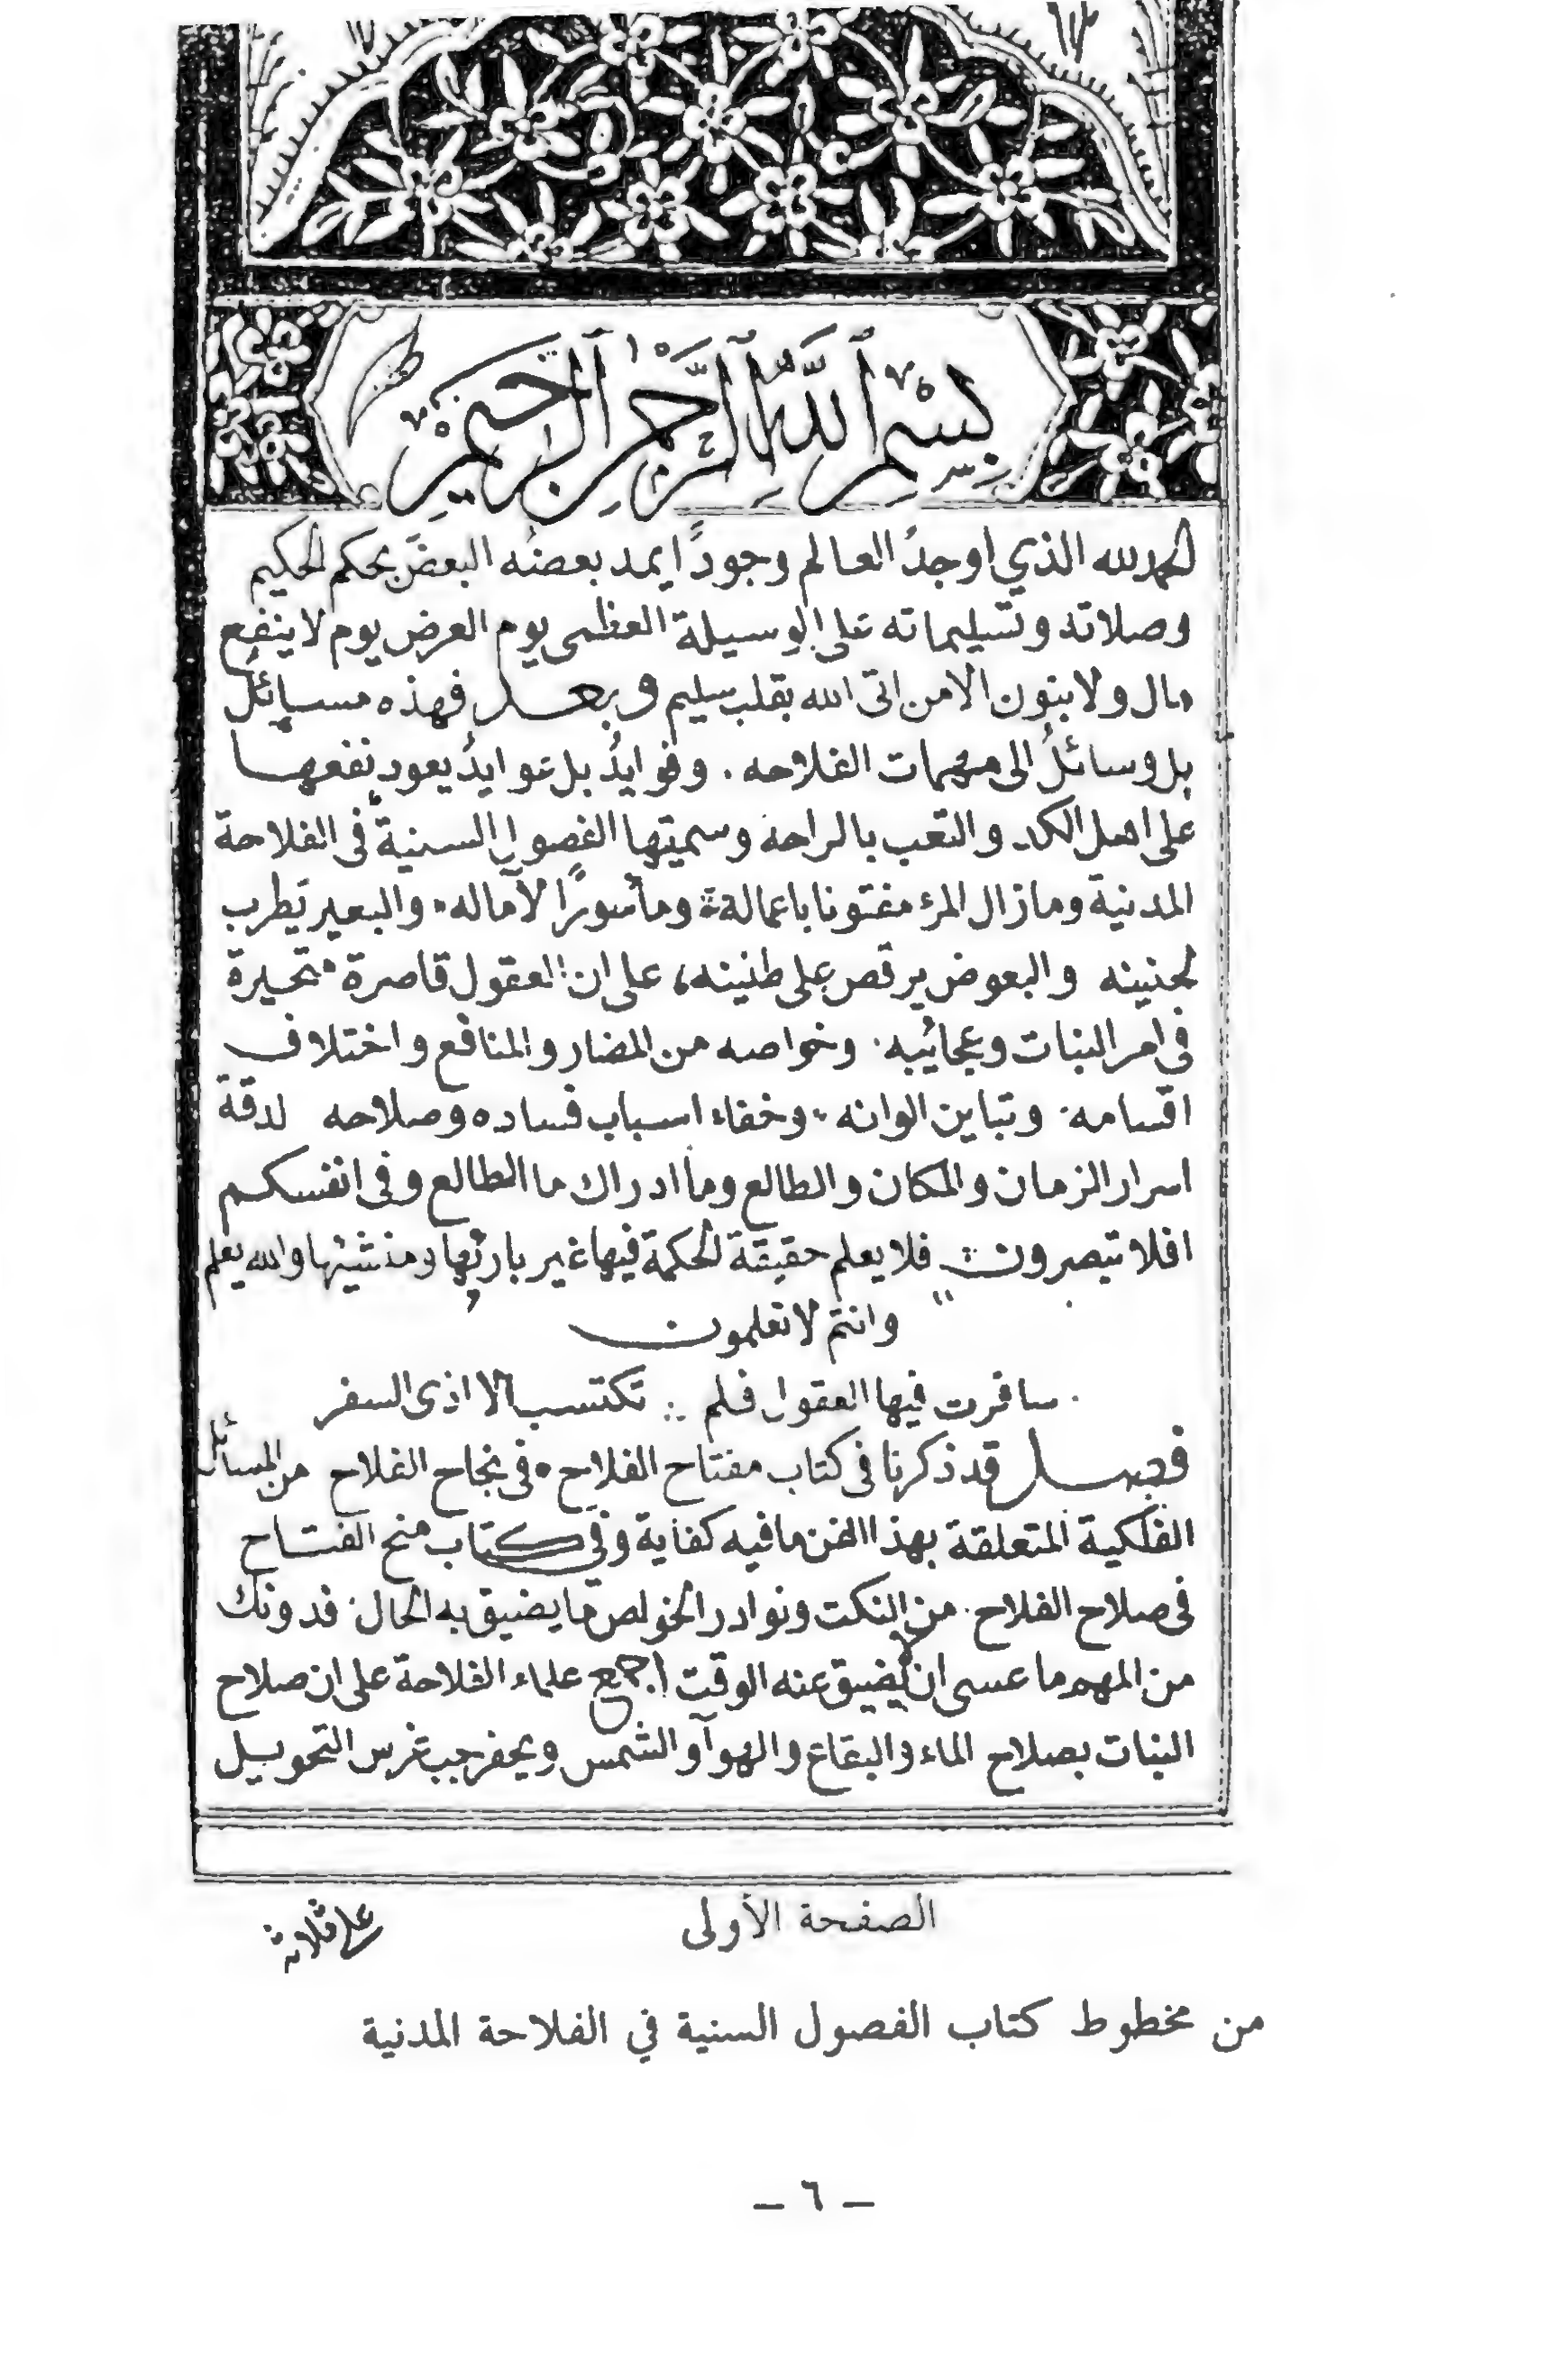 بِسْمِ ٱللَّهِ ٱلرَّحْمٰنِ ٱلرَّحِيمِ
الحمد لله الذي اوجدُ العالم وجودًا يمد بعضُه البعضَ بحكم الحكيم
وصلاته وتسليماته على الوسيلة العظمى يوم العرض يوم لا ينفع
مال ولا بنون الا من اتى الله بقلب سليم وبعد فهذه مسائلُ
بل وسائلُ الى مهمات الفلاحه . وفوايدُ بل عوايدُ يعود نفعها
على اهل الكد والتعب بالراحة وسميتها الفصول السنية في الفلاحة
المدنية وما زال المرء مفتونا باعماله ومأسورًا لآماله والبعير يَطرب
لحنينه والبعوض يرقص على طنينه، على ان العقول قاصرة متحيرة
في امر النبات وعجائبه . وخواصه من المضار والمنافع واختلاف
اقسامه . وتباين الوانه . وخفاء اسباب فساده وصلاحه لدقة
اسرار الزمان والمكان والطالع وما ادراك ما الطالع وفي انفسكم
افلا تبصرون فلا يعلم حقيقة الحكمة فيها غير بارئها ومنشيئها والله يعلم
وانتم لا تعلمون
سافرت فيها العقول فلم ∴ تكتسب الا اذى السفر
فصل قد ذكرنا في كتاب مفتاح الفلاح . في نجاح الفلاح من المسائل
الفلكية المتعلقة بهذا الفن ما فيه كفاية وفي كتاب منح الفتاح
في صلاح الفلاح . من النكت ونوادر الخواص ما يضيق به الحال . فدونك
من المهم ما عسى ان لا يضيق عنه الوقت اجمع علماء الفلاحة على ان صلاح
النبات بصلاح الماء والبقاع والهوآ والشمس ويحفر جب غرس التحويل
على ثلاثة
الصفحة الأولى
من مخطوط كتاب الفصول السنية في الفلاحة المدنية
– ٦ –